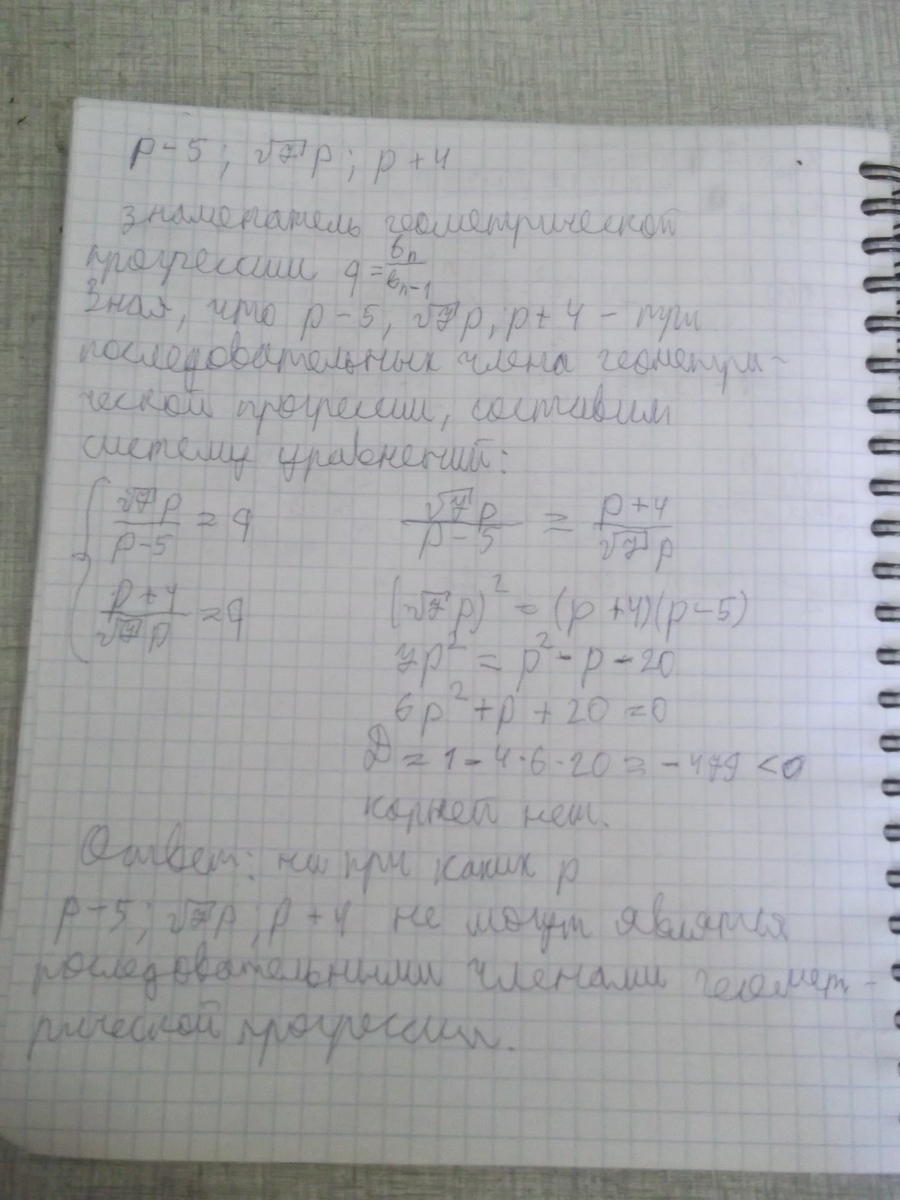 p-5; √7 p; p+4
знаменатель геометрической
прогрессии q = bₙ/bₙ₋₁
Зная, что p-5, √7 p, p+4 - три
последовательных члена геометри-
ческой прогрессии, составим
систему уравнений:
{ √7 p / (p-5) = q
(p+4) / (√7 p) = q
√7 p / (p-5) = (p+4) / (√7 p)
(√7 p)² = (p+4)(p-5)
7p² = p² - p - 20
6p² + p + 20 = 0
D = 1 - 4·6·20 = -479 < 0
корней нет.
Ответ: ни при каких p
p-5; √7 p; p+4 не могут являтся
последовательными членами геомет-
рической прогрессии.